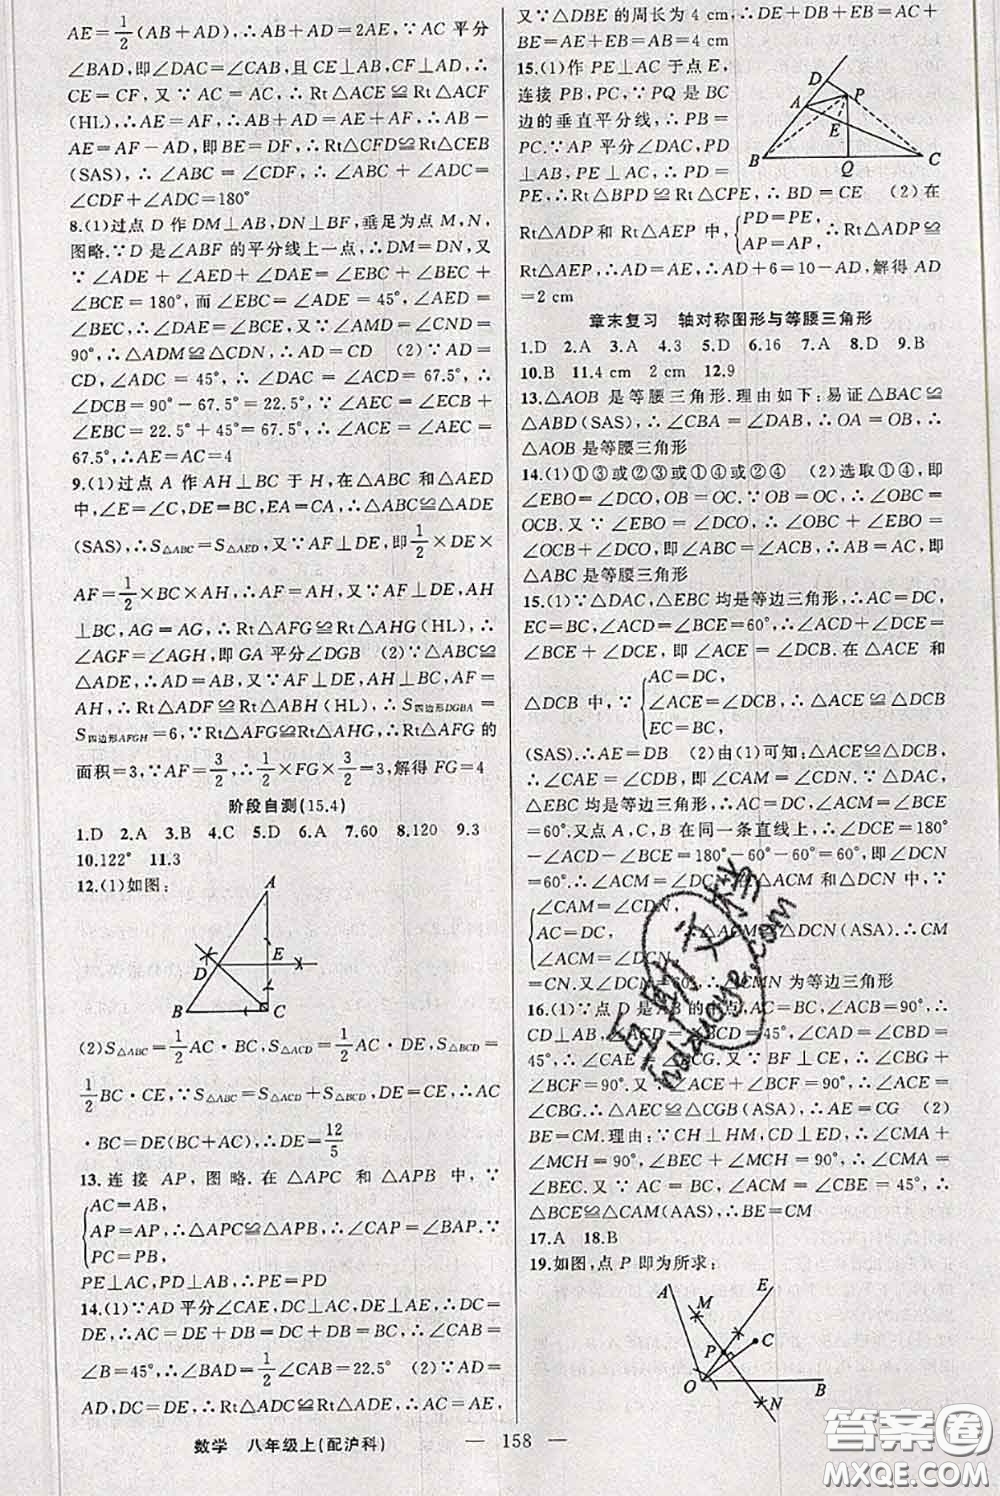 AE=1/2(AB+AD),∴AB+AD=2AE,∵AC 平分
∠BAD,即∠DAC=∠CAB,且 CE⊥AB,CF⊥AD,∴
CE=CF,又∵AC=AC,∴Rt△ACE≌Rt△ACF
(HL),∴AE=AF,∴AB+AD=AE+AF,∴AB-
AE=AF-AD,即BE=DF,∴Rt△CFD≌Rt△CEB
(SAS),∴∠ABC=∠CDF,∴∠ABC+∠ADC=
∠CDF+∠ADC=180°
8.(1)过点 D 作 DM⊥AB,DN⊥BF,垂足为点 M,N,
图略.∵D 是∠ABF 的平分线上一点,∴DM=DN,又
∵∠ADE+∠AED+∠DAE=∠EBC+∠BEC+
∠BCE=180°,而∠EBC=∠ADE=45°,∠AED=
∠BEC,∴∠DAE=∠BCE,又∵∠AMD=∠CND=
90°,∴△ADM≌△CDN,∴AD=CD (2)∵AD=
CD,∠ADC=45°,∴∠DAC=∠ACD=67.5°,∴
∠DCB=90°-67.5°=22.5°,∴∠AEC=∠ECB+
∠EBC=22.5°+45°=67.5°,∴∠AEC=∠EAC=
67.5°,∴AE=AC=4
9.(1)过点 A 作 AH⊥BC 于 H,在△ABC 和△AED
中,∠E=∠C,DE=BC,EA=CA,∴△ABC≌△ADE
(SAS),∴S△ABC=S△AED,又∵AF⊥DE,即1/2×DE×
AF=1/2×BC×AH,∴AF=AH,又∵AF⊥DE,AH
⊥BC,AG=AG,∴Rt△AFG≌Rt△AHG(HL),∴
∠AGF=∠AGH,即 GA 平分∠DGB (2)∵△ABC≌
△ADE,∴AD=AB,又∵AF⊥DE,AH⊥BC,AF=
AH,∴Rt△ADF≌Rt△ABH(HL),∴S四边形DGBA=
S四边形AFGH=6,∵Rt△AFG≌Rt△AHG,∴Rt△AFG 的
面积=3,∵AF=3/2,∴1/2×FG×3/2=3,解得 FG=4
阶段自测(15.4)
1.D 2.A 3.B 4.C 5.D 6.A 7.60 8.120 9.3
10.122° 11.3
12.(1)如图:
A
E
D
B
C
(2)S△ABC=1/2AC·BC,S△ACD=1/2AC·DE,S△BCD=
1/2BC·CE,∵S△ABC=S△ACD+S△BCD,DE=CE,∴AC
·BC=DE(BC+AC),∴DE=12/5
13.连接 AP,图略.在△APC 和△APB 中,∵
AC=AB,
AP=AP,∴△APC≌△APB,∴∠CAP=∠BAP.∵
PC=PB,
PE⊥AC,PD⊥AB,∴PE=PD
14.(1)∵AD 平分∠CAE,DC⊥AC,DE⊥AE,∴DC=
DE,∴AC=DE+DB=DC+DB=BC,∴∠CAB=
∠B=45°,∴∠BAD=1/2∠CAB=22.5° (2)∵AD=
AD,DC=DE,∴Rt△ADC≌Rt△ADE,∴AC=AE,
又∵△DBE 的周长为 4 cm,∴DE+DB+EB=AC+
BE=AE+EB=AB=4 cm
15.(1)作 PE⊥AC 于点 E,
连接 PB,PC,∵PQ 是 BC
边的垂直平分线,∴PB=
PC.∵AP 平分∠DAC,PD
⊥AB,PE⊥AC,∴PD=
D
P
A
E
B
Q
C
PE,∴Rt△BPD≌Rt△CPE,∴BD=CE (2)在
Rt△ADP和 Rt△AEP 中,{PD=PE, AP=AP,∴Rt△ADP≌
Rt△AEP,∴AD=AE,∴AD+6=10-AD,解得 AD
=2 cm
章末复习 轴对称图形与等腰三角形
1.D 2.A 3.A 4.3 5.D 6.16 7.A 8.D 9.B
10.B 11.4 cm 2 cm 12.9
13.△AOB 是等腰三角形.理由如下:易证△BAC≌
△ABD(SAS),∴∠CBA=∠DAB,∴OA=OB,∴
△AOB是等腰三角形
14.(1)①③或②③或①④或②④ (2)选取①④,即
∠EBO=∠DCO,OB=OC.∵OB=OC,∴∠OBC=
OCB.又∵∠EBO=∠DCO,∴∠OBC+∠EBO=
∠OCB+∠DCO,即∠ABC=∠ACB,∴AB=AC,即
△ABC是等腰三角形
15.(1)∵△DAC,△EBC均是等边三角形,∴AC=DC,
EC=BC,∠ACD=∠BCE=60°,∴∠ACD+∠DCE=
∠BCE+∠DCE,即∠ACE=∠DCB.在△ACE 和
AC=DC,
△DCB 中,∵∠ACE=∠DCB,∴△ACE≌△DCB
EC=BC,
(SAS).∴AE=DB (2)由(1)可知:△ACE≌△DCB,
∴∠CAE=∠CDB,即∠CAM=∠CDN.∵△DAC,
△EBC均是等边三角形,∴AC=DC,∠ACM=∠BCE
=60°.又点 A,C,B 在同一条直线上,∴∠DCE=180°
-∠ACD-∠BCE=180°-60°-60°=60°,即∠DCN
=60°.∴∠ACM=∠DCN.在△ACM 和△DCN 中,
∠CAM=∠CDN,
AC=DC, ∴△ACM≌△DCN(ASA).∴CM
=CN.又∠DCN=60°,∴△CMN 为等边三角形
16.(1)∵点 D 是AB的中点,AC=BC,∠ACB=90°,∴
CD⊥AB,∠ACD=∠BCD=45°,∠CAD=∠CBD=
45°,∴∠CAE=∠BCG.又∵BF⊥CE,∴∠CBG+
∠BCF=90°.又∵∠ACE+∠BCF=90°,∴∠ACE=
∠CBG,∴△AEC≌△CGB(ASA),∴AE=CG (2)
BE=CM.理由:∵CH⊥HM,CD⊥ED,∴∠CMA+
∠MCH=90°,∠BEC+∠MCH=90°,∴∠CMA=
∠BEC.又∵AC=BC,∠ACM=∠CBE=45°,∴
△BCE≌△CAM(AAS),∴BE=CM
17.A 18.B
19.如图,点 P 即为所求:
A
M
E
P
C
O
B
N
数学 八年级上(配沪科) — 158 —
答案卷
MXQE.COM